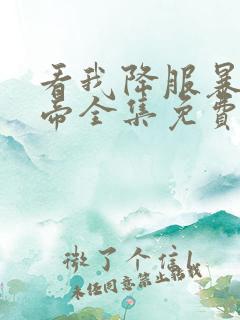 看我降服暴
帝全集免費
微了个信
未经同意禁止转载